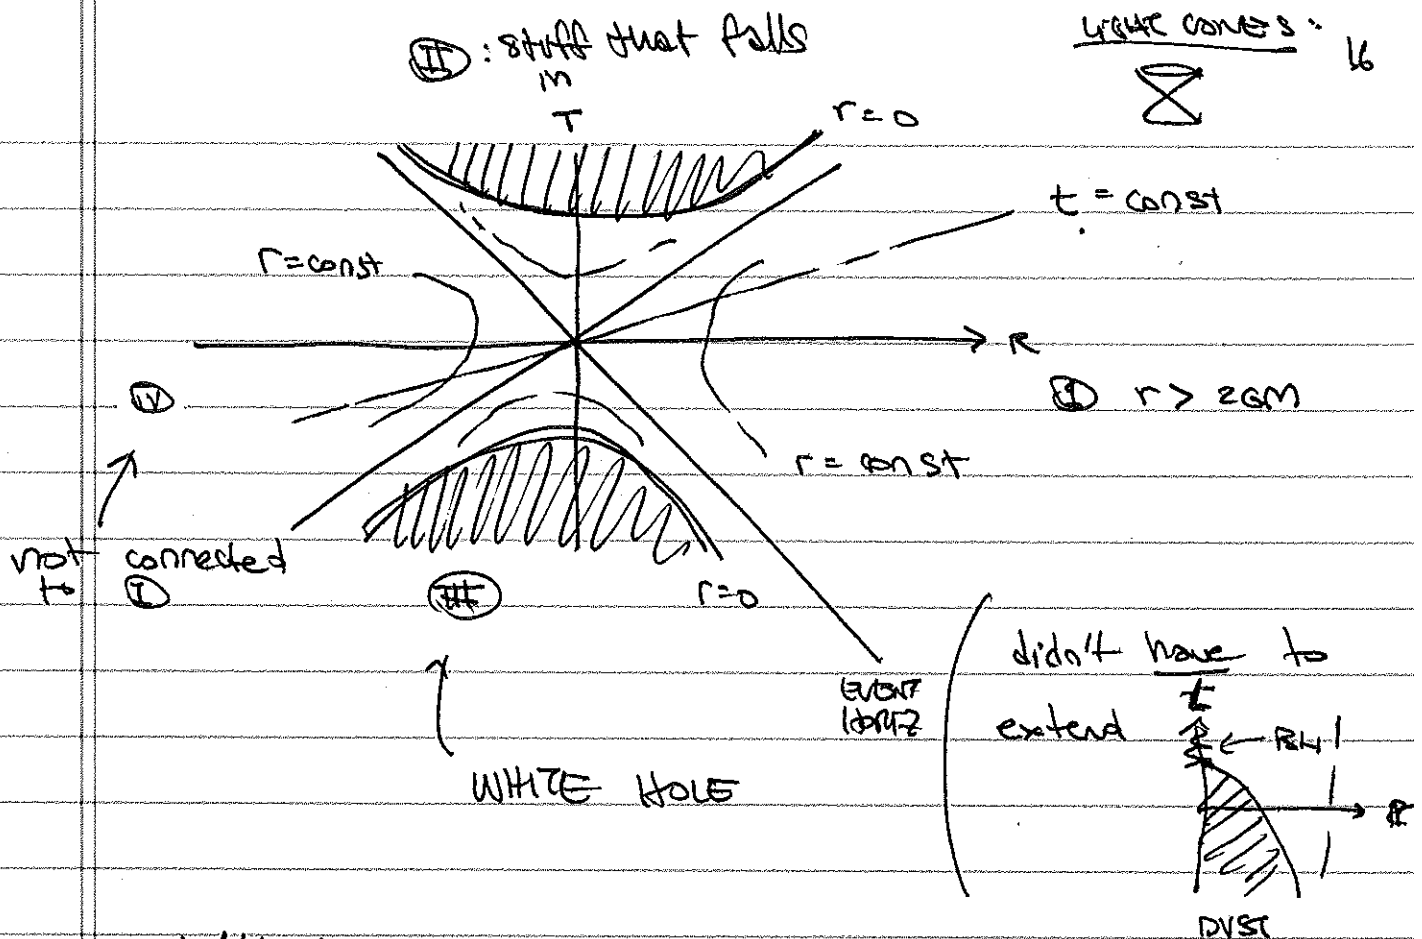 II : stuff that falls
in
LIGHT CONES :
16
T
r=0
t = const
r=const
R
IV
I r > 2GM
r = const
not connected
to I
III
r=0
EVENT
HORIZ
WHITE HOLE
didn't have to
extend
t
R
DUST